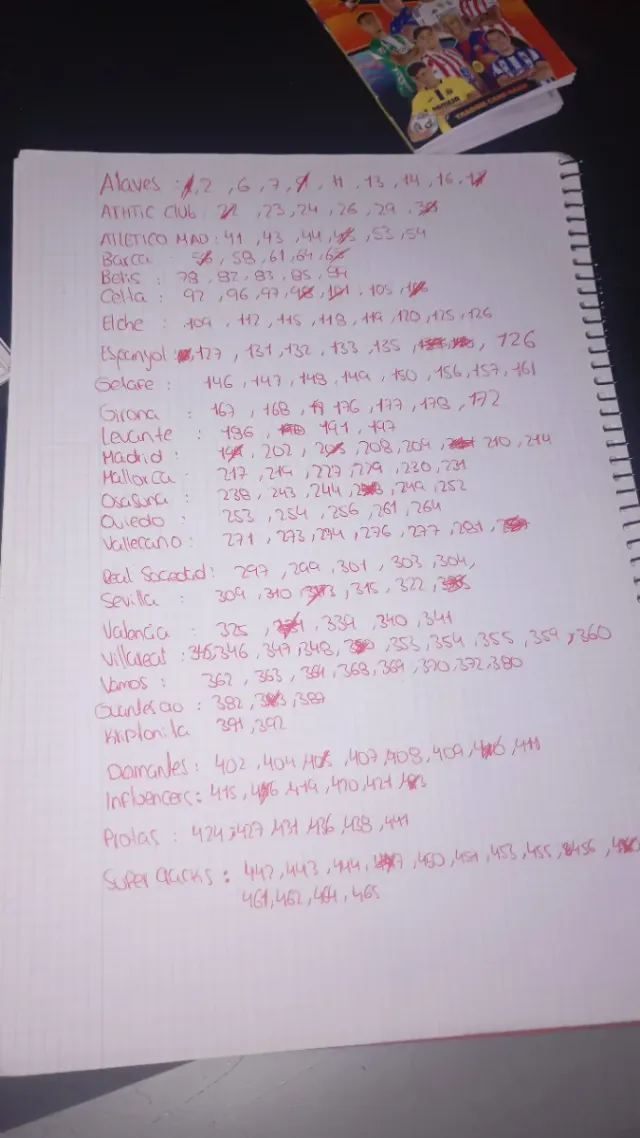 TRADING CARD GAME
Alaves : 1, 2, 6, 7, 9, 11, 13, 14, 16, 17
ATHTIC CLUB : 21, 23, 24, 26, 29, 30
ATLETICO MAD : 41, 43, 44, 45, 53, 54
Barca : 56, 58, 61, 64, 65
Betis : 78, 82, 83, 85, 84
Celta : 92, 96, 97, 98, 101, 105, 106
Elche : 109, 112, 115, 118, 119, 120, 125, 126
Espanyol : 127, 131, 132, 133, 135, 126
Getafe : 146, 147, 148, 149, 150, 156, 157, 161
Girona : 167, 168, 176, 177, 178, 172
Levante : 196, 191, 197
Madrid : 202, 205, 208, 209, 210, 214
Mallorca : 217, 219, 227, 229, 230, 231
Osasuna : 238, 243, 244, 249, 252
Oviedo : 253, 254, 256, 261, 264
Vallecano : 271, 273, 274, 276, 277, 281
Real Sociedad : 297, 299, 301, 303, 304,
Sevilla : 309, 310, 313, 315, 322
Valencia : 325, 339, 340, 341
Villareal : 345, 346, 347, 348, 353, 354, 355, 359, 360
Vamos : 362, 363, 364, 368, 369, 370, 372, 380
Guantes oro : 382, 383, 387
Kriptonita 391, 392
Diamantes : 402, 404, 405, 407, 408, 409, 410, 411
Influencers : 415, 416, 419, 420, 421, 423
Protas : 424, 427, 431, 436, 438, 441
Super cracks : 442, 443, 444, 447, 450, 451, 453, 455, 456,
461, 462, 464, 465